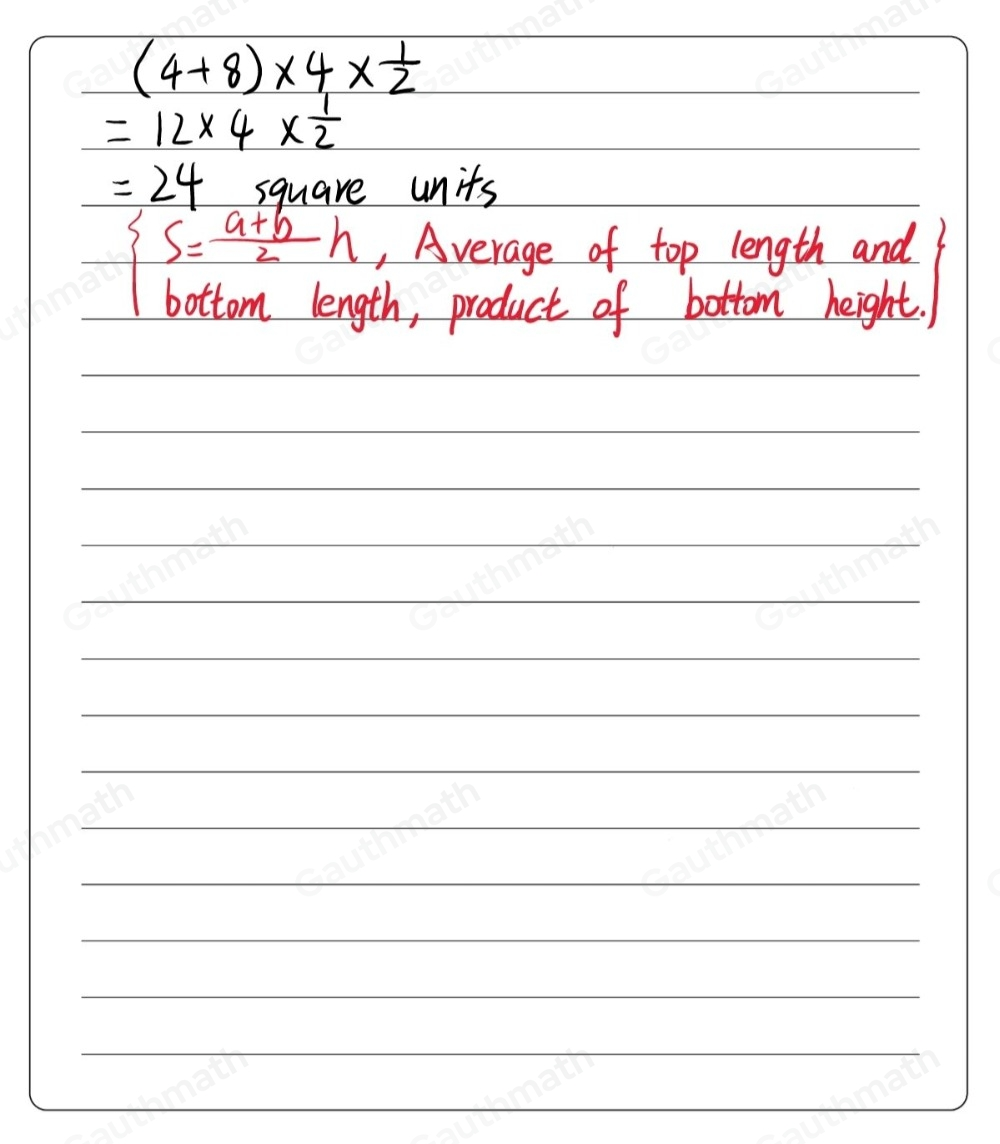 (4+8)×4×1/2
= 12×4×1/2
= 24 square units
{ S= a+b/2 h, Average of top length and }
bottom length, product of bottom height.
Gauthmath